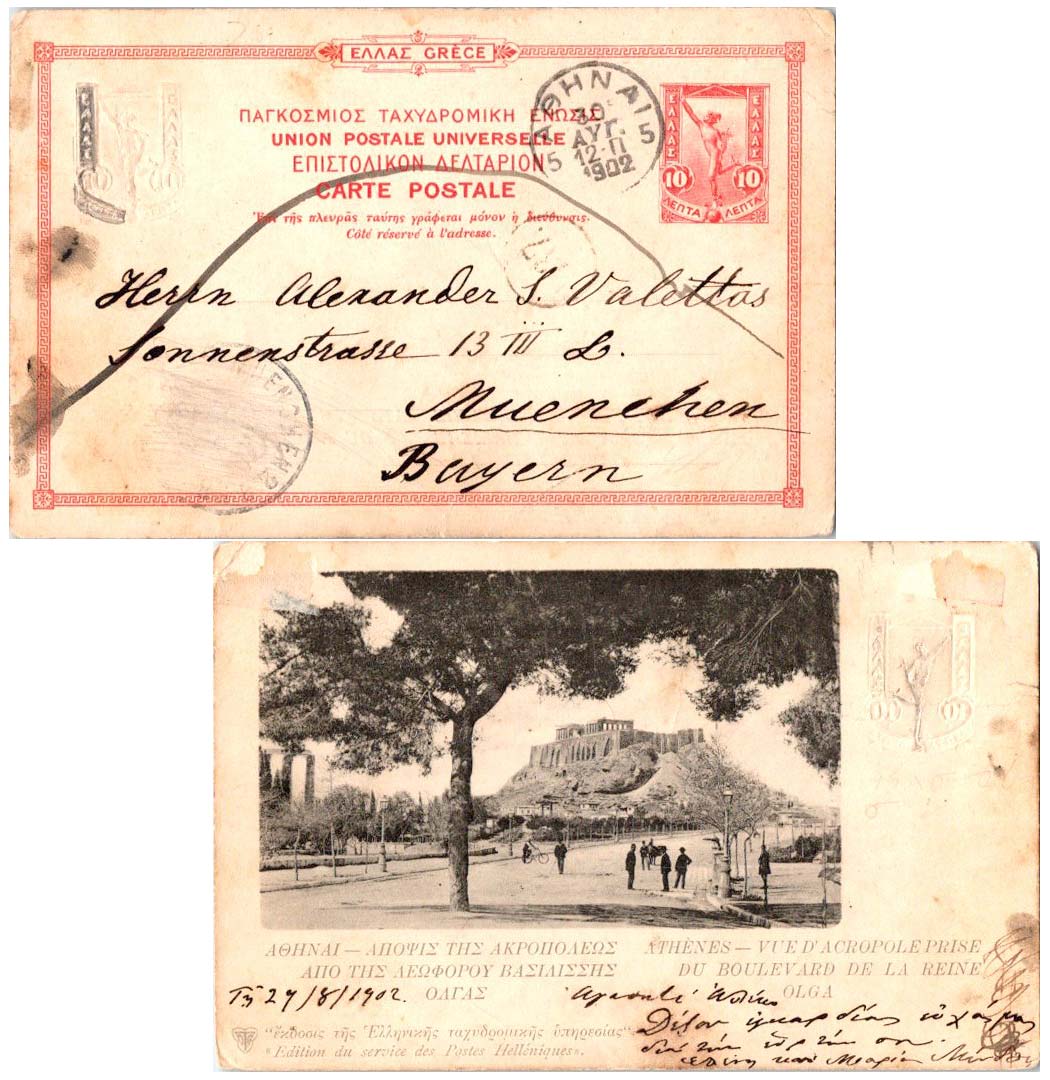 ΕΛΛΑΣ GRÈCE
ΠΑΓΚΟΣΜΙΟΣ ΤΑΧΥΔΡΟΜΙΚΗ ΕΝΩΣΙΣ
UNION POSTALE UNIVERSELLE
ΕΠΙΣΤΟΛΙΚΟΝ ΔΕΛΤΑΡΙΟΝ
CARTE POSTALE
Ἐπὶ τῆς πλευρᾶς ταύτης γράφεται μόνον ἡ διεύθυνσις.
Côté réservé à l'adresse.
ΑΘΗΝΑΙ
5 5
30
ΑΥΓ.
12-Π
1902
ΕΛΛΑΣ ΕΛΛΑΣ
10 10
ΛΕΠΤΑ ΛΕΠΤΑ
ΕΛΛΑΣ
Herrn Alexander S. Valettas
Sonnenstrasse 13 III L.
Muenchen
Bayern
MUENCHEN 2
ΕΛΛΑΣ ΕΛΛΑΣ
ΑΘΗΝΑΙ — ΑΠΟΨΙΣ ΤΗΣ ΑΚΡΟΠΟΛΕΩΣ
ΑΠΟ ΤΗΣ ΛΕΩΦΟΡΟΥ ΒΑΣΙΛΙΣΣΗΣ
ΟΛΓΑΣ
ATHÈNES — VUE D'ACROPOLE PRISE
DU BOULEVARD DE LA REINE
OLGA
Τῇ 29/8/1902.
"ἔκδοσις τῆς Ἑλληνικῆς ταχυδρομικῆς ὑπηρεσίας"
"Edition du service des Postes Helléniques".